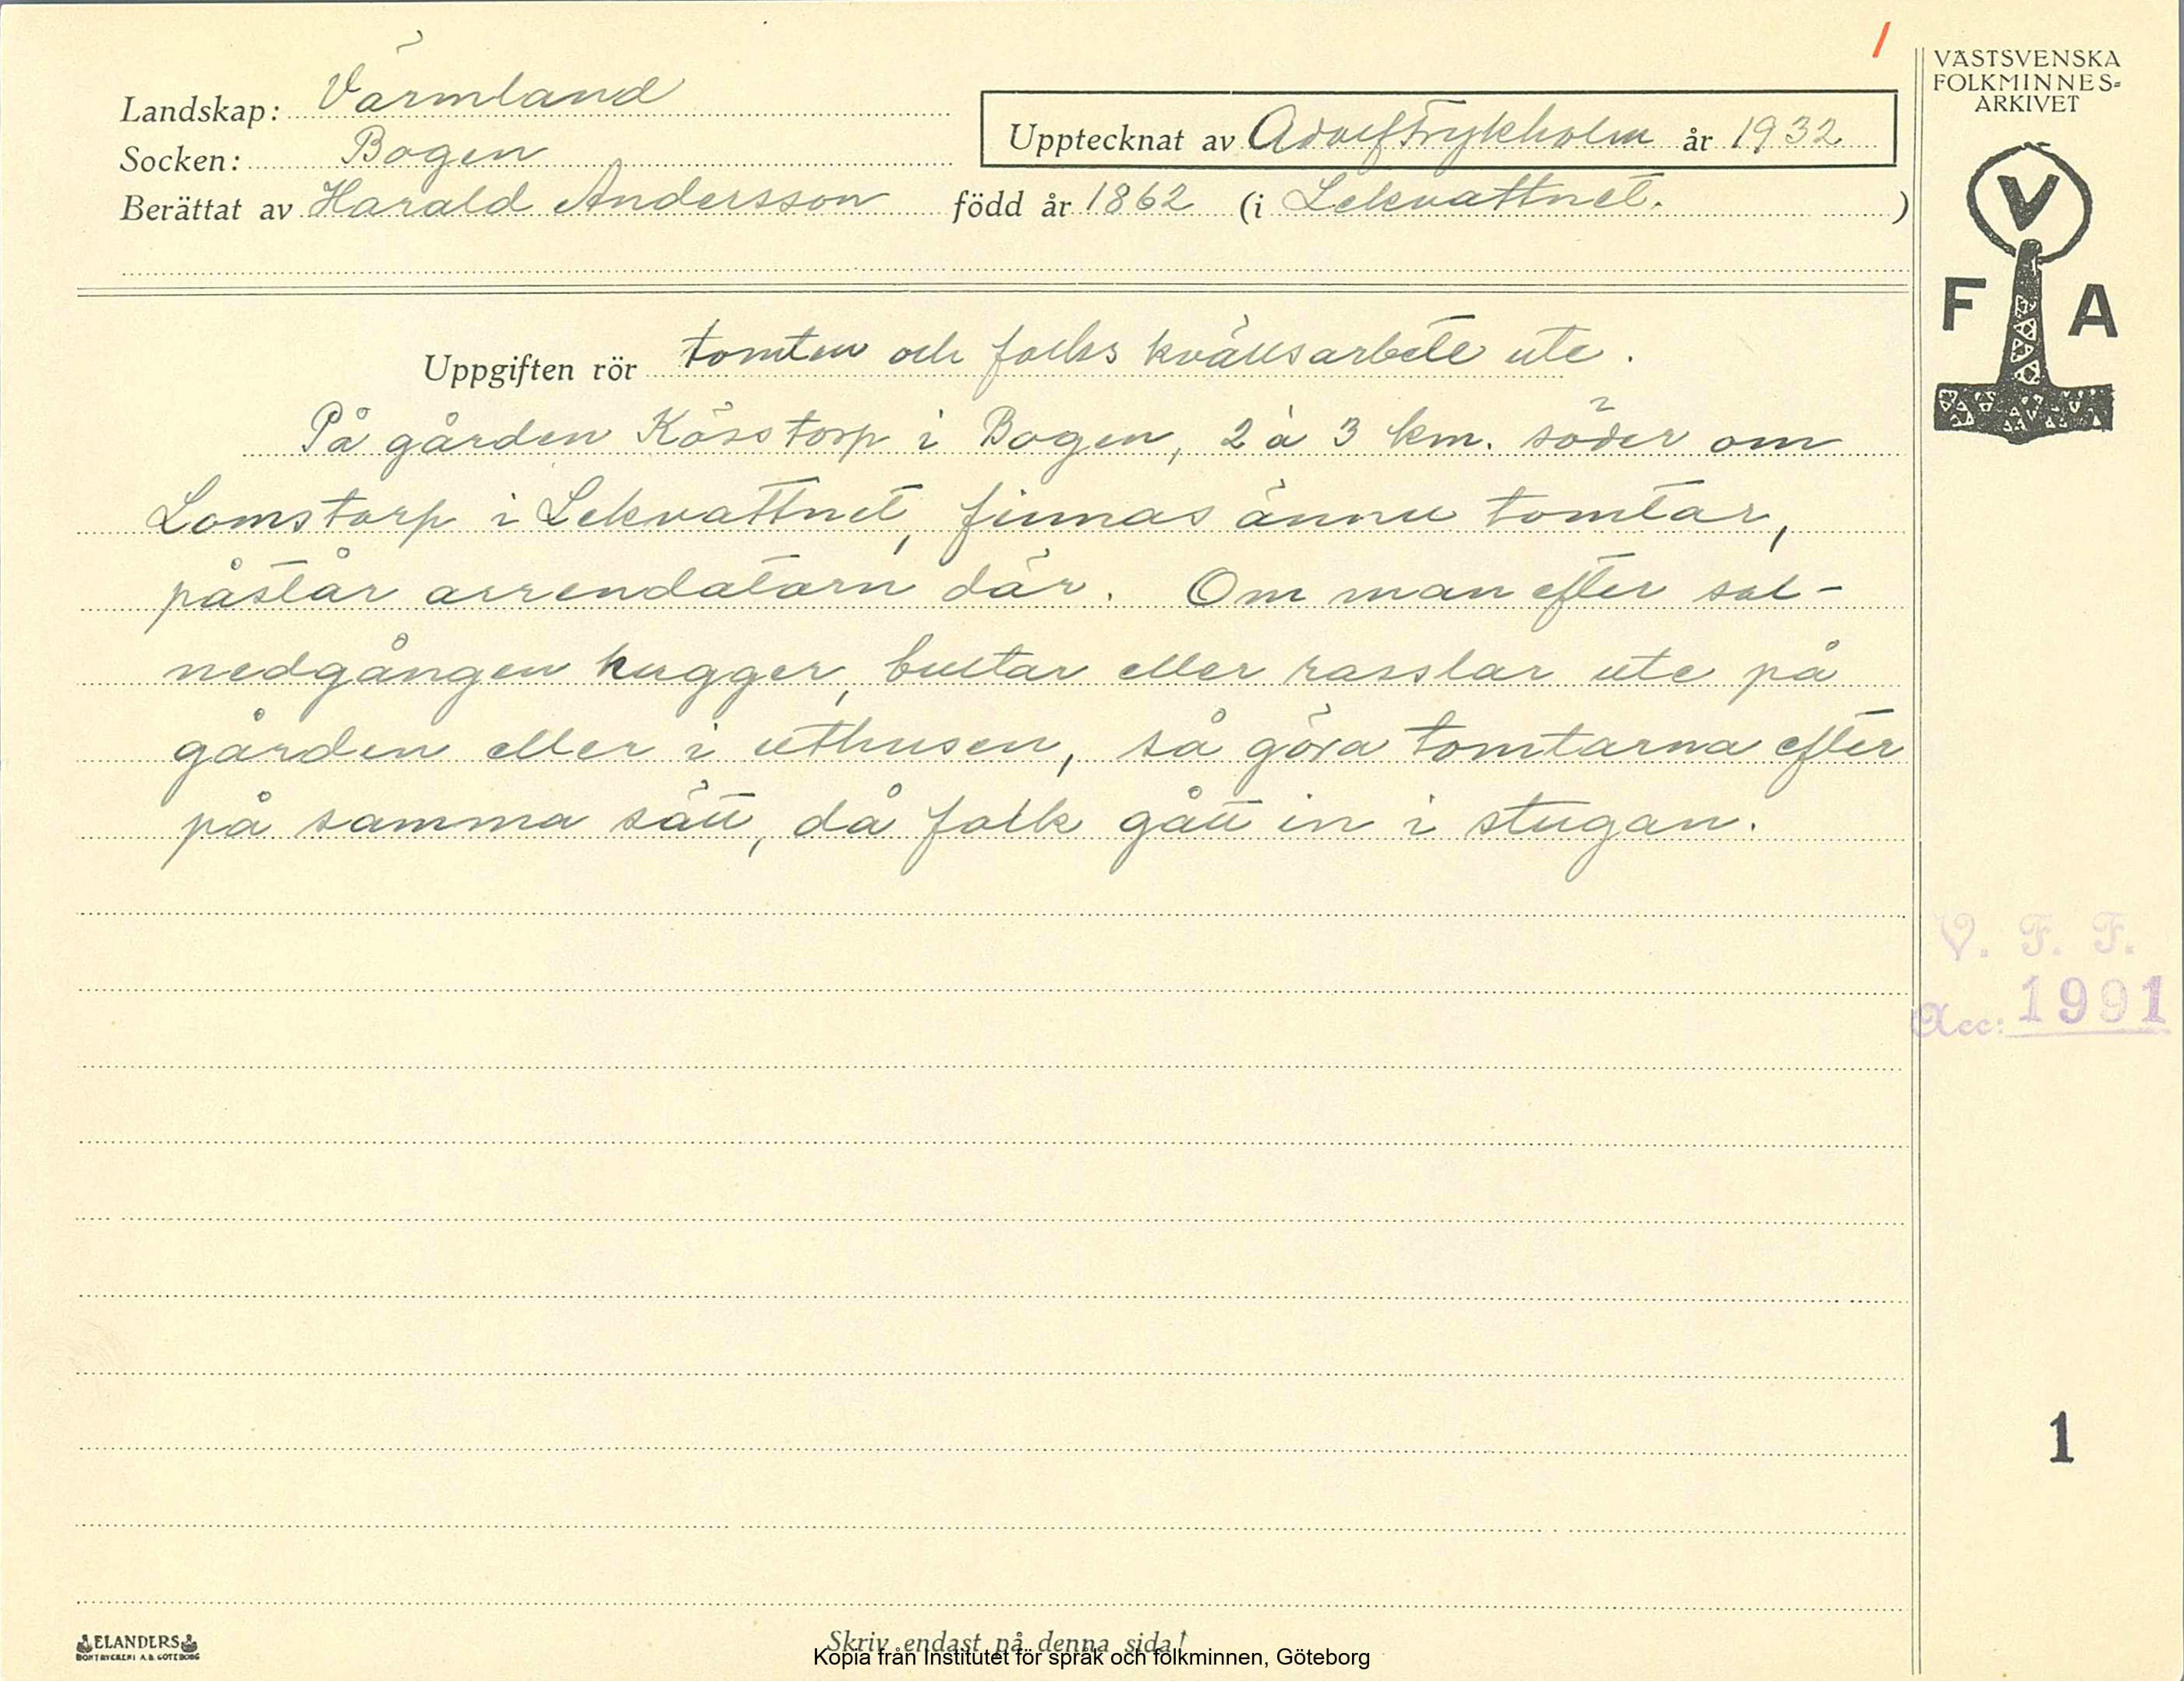 /
VÄSTSVENSKA
FOLKMINNES-
ARKIVET
V
F A
Landskap: Värmland
Socken: Bogen
Upptecknat av Adolf Frykholm år 1932
Berättat av Harald Andersson född år 1862 (i Lekvattnet. )
Uppgiften rör tomten och folks kvällsarbete ute.
På gården Kösstorp i Bogen, 2 à 3 km. söder om
Lomstorp i Lekvattnet, finnas ännu tomtar,
påstår arrendatorn där. Om man efter sol-
nedgången hugger, bultar eller rasslar ute på
gården eller i uthusen, så göra tomtarna efter
på samma sätt, då folk gått in i stugan.
V. F. F.
Acc: 1991
1
ELANDERS
BOKTRYCKERI A.B. GÖTEBORG
Skriv endast på denna sida!
Kopia från Institutet för språk och folkminnen, Göteborg